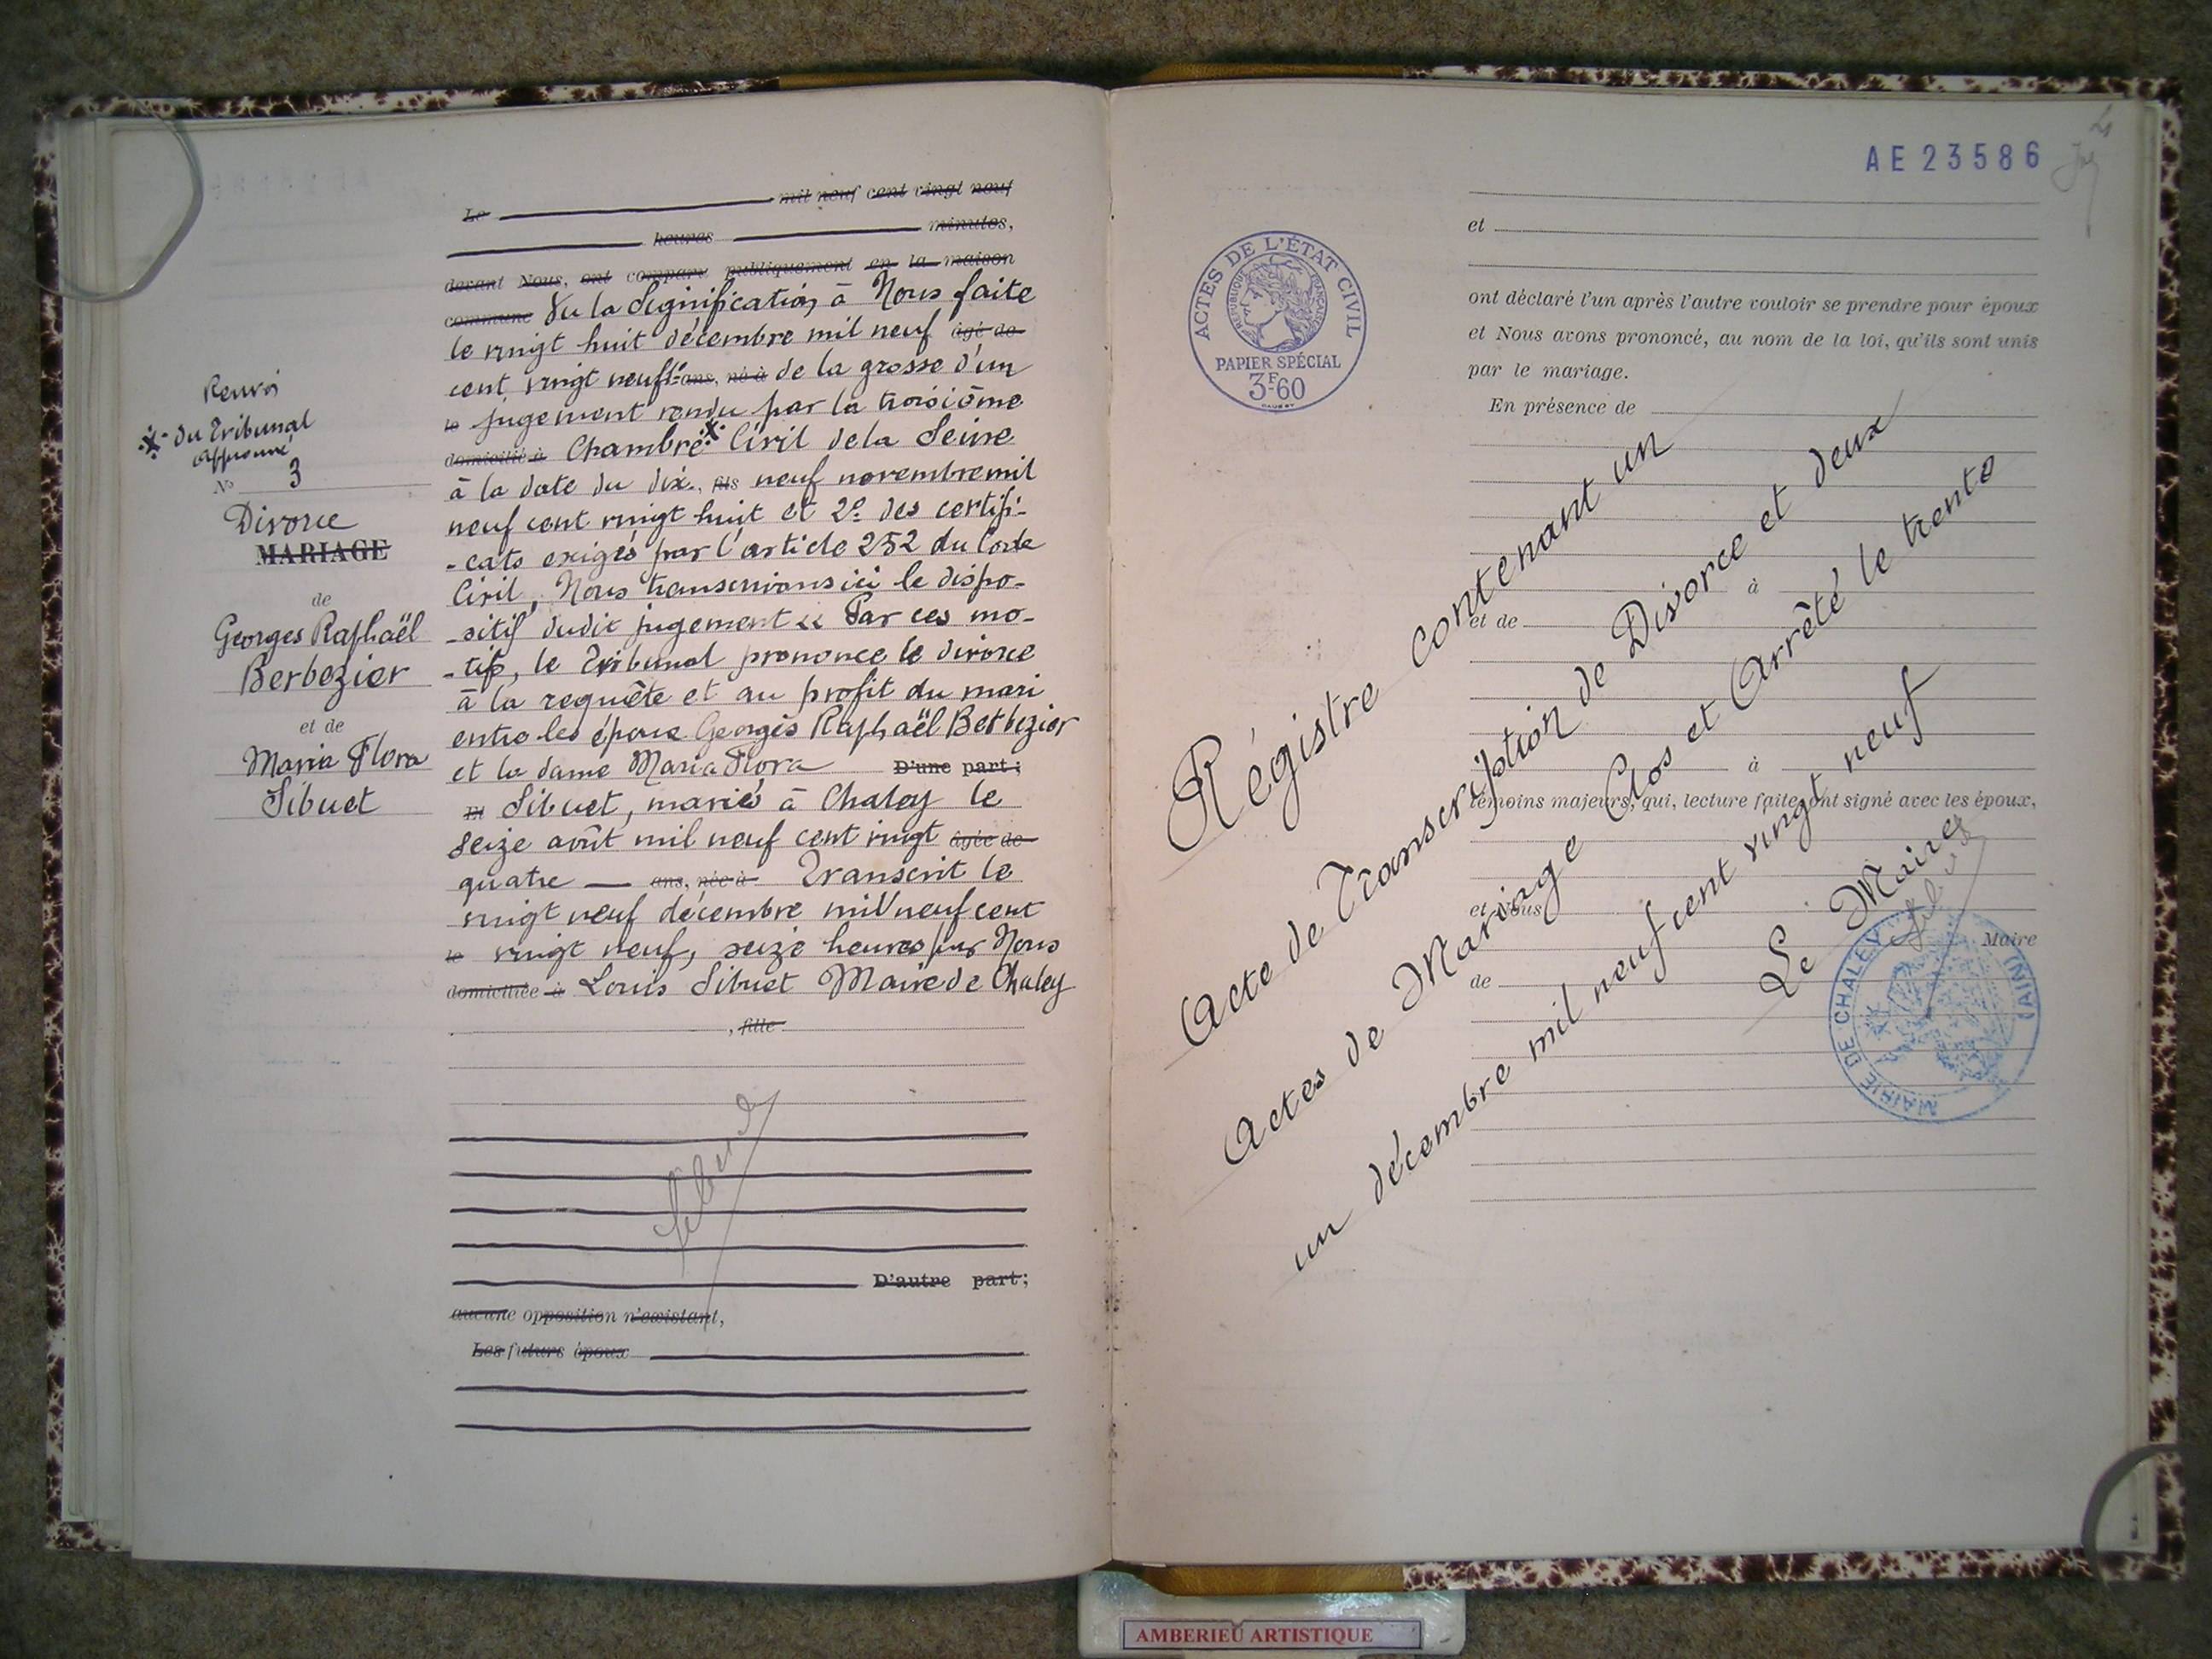 Le mil neuf cent vingt neuf
heures minutes,
devant Nous, ont comparu publiquement en la maison
commune Vu la Signification à Nous faite
le vingt huit décembre mil neuf âgé de
cent vingt neuf 1º ans, né à de la grosse d'un
le jugement rendu par la troisième
domicilié à Chambre * Civil de la Seine
à la date du dix, fils neuf novembre mil
neuf cent vingt huit et 2º des certifi-
-cats exigés par l'article 252 du Code
Civil, Nous transcrivons ici le dispo-
-sitif dudit jugement << Par ces mo-
-tifs, le Tribunal prononce le divorce
à la requête et au profit du mari
entre les époux Georges Raphaël Berbezier
et la dame Maria Flora D'une part;
Et Sibuet, mariés à Chaley le
seize août mil neuf cent vingt âgée de
quatre — ans, née à Transcrit le
vingt neuf décembre mil neuf cent
le vingt neuf, seize heures par Nous
domiciliée à Louis Sibuet Maire de Chaley
, fille
Sibuet
D'autre part;
aucune opposition n'existant,
Les futurs époux
Renvoi
* du Tribunal
approuvé
No 3
Divorce
MARIAGE
de
Georges Raphaël
Berbezier
et de
Maria Flora
Sibuet
AE 23586
ACTES DE L'ÉTAT CIVIL
RÉPUBLIQUE FRANÇAISE
PAPIER SPÉCIAL
3F60
et
ont déclaré l'un après l'autre vouloir se prendre pour époux
et Nous avons prononcé, au nom de la loi, qu'ils sont unis
par le mariage.
En présence de
à
et de
à
témoins majeurs, qui, lecture faite, ont signé avec les époux,
et Nous
Maire
de
Régistre contenant un
Acte de Transcription de Divorce et deux
Actes de Mariage Clos et Arrêté le trente
un décembre mil neuf cent vingt neuf
Le Maire
Sibuet
MAIRIE DE CHALEY (AIN)
AMBERIEU ARTISTIQUE